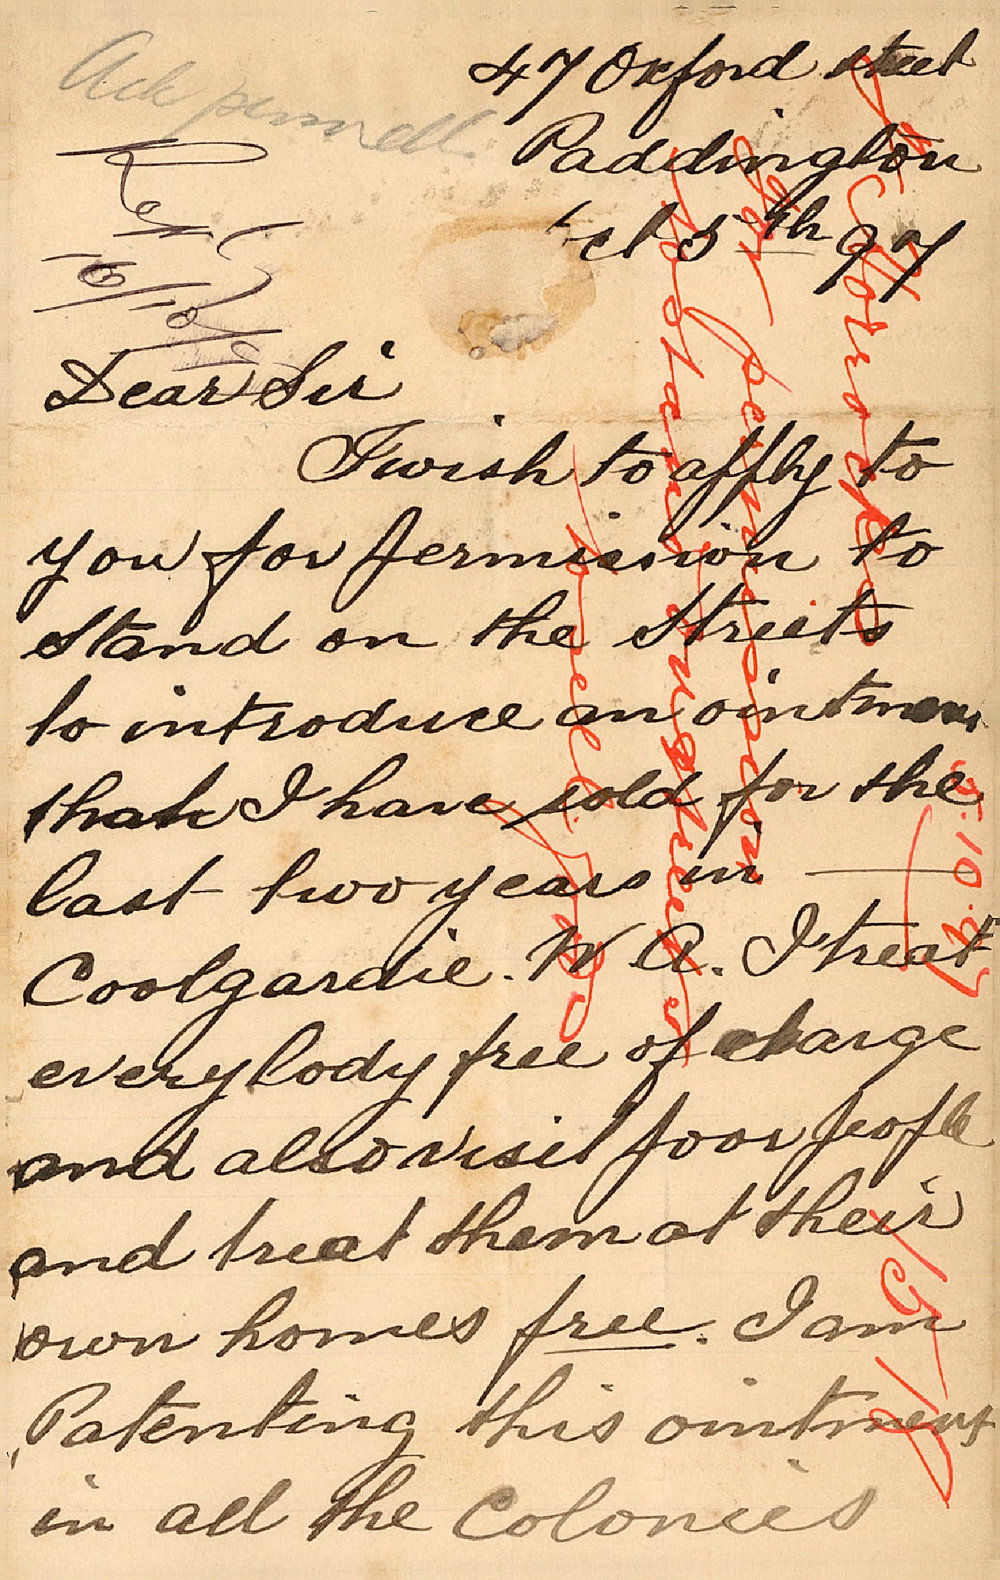 Ack
47 Oxford street
Paddington
ct 5th 97
16/10/
Dear Sir
I wish to apply to
you for permission to
Stand on the Streets
to introduce an ointment
that I have sold for the
last two years in
Coolgardie. W A. I treat
everybody free of charge
and also visit poor people
and treat them at their
own homes free. I am
Patenting this ointment
in all the Colonies
for permission
to stand in streets
5.10.97
1518